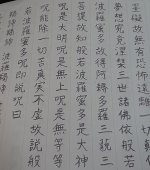 罣礙故無有恐怖遠離一切顛倒
夢想究竟涅槃三世諸佛依般若
波羅蜜多故得阿耨多羅三藐三
菩提故知般若波羅蜜多是大神
呪是大明呪是無上呪是無等等
呪能除一切苦真実不虚故説般
若波羅蜜多呪即説呪曰
羯諦羯諦 波羅羯諦